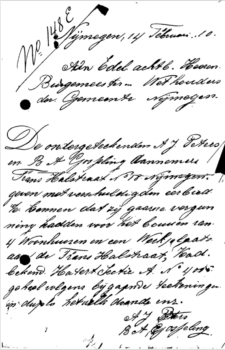 No 148 E
Nijmegen, 14 Februari 10.
Aan Edel achtb. Heeren
Burgemeester en Wethouders
der Gemeente Nijmegen.
De ondergeteekenden A J Peters
en B A Aannemers
Frans Halsstraat Nijmegen
geven met verschuldigden eerbied
te kennen dat zij gaarne vergun
ning hadden voor het bouwen van
4 Woonhuizen en een Werkplaats
aan de Frans Halsstraat, Kad.
bekend Hatert Sectie A. No
geheel volgens bijgaande teekeningen
in duplo
A J Peters
B A